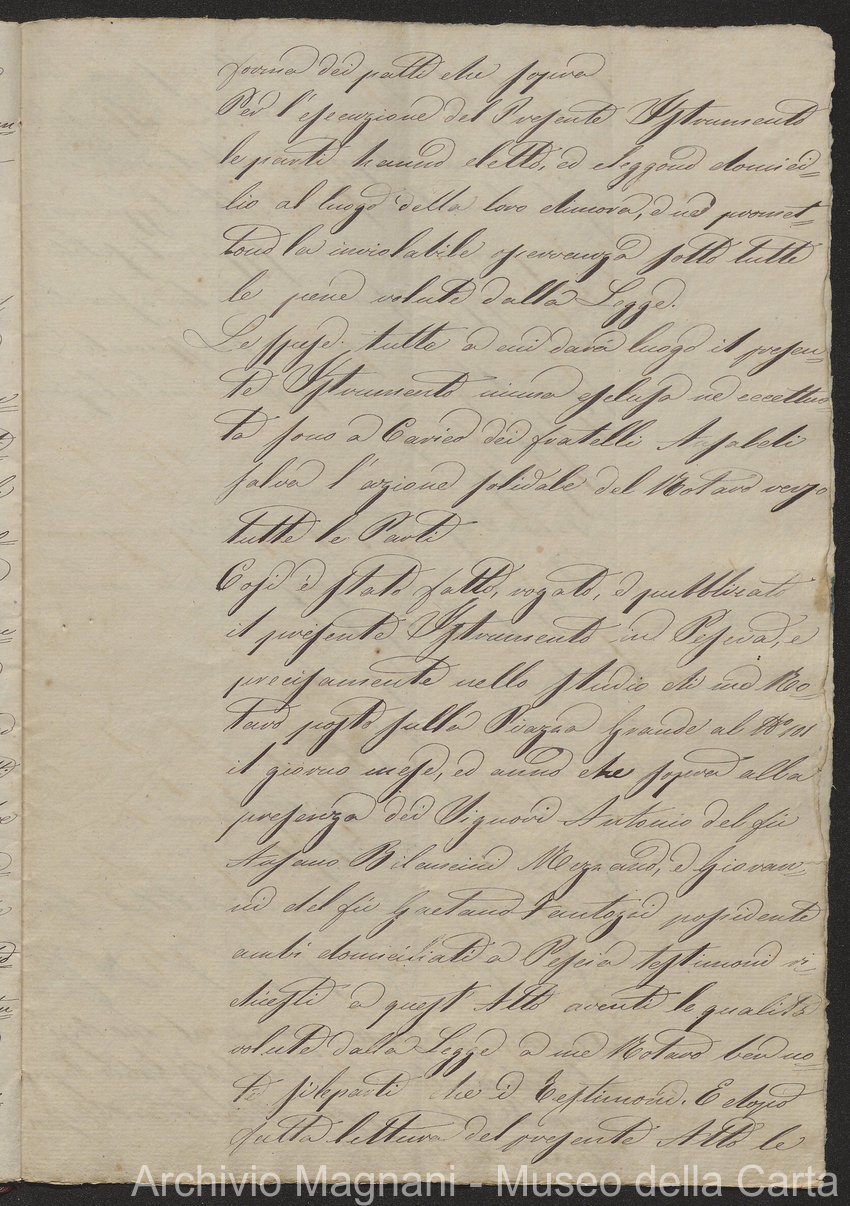 forma dei patti che sopra
Per l'esecuzione del Presente Istrumento
le parti hanno eletto, ed eleggono domici=
lio al luogo della loro dimora, e ne promet=
tono la inviolabile osservanza sotto tutte
le pene volute dalla Legge.
Le spese tutte a cui darà luogo il presen=
te Istrumento niuna esclusa ne eccettua=
ta sono a Carico dei fratelli Ansaldi
salva l'azione solidale del Notaro verso
tutte le Parti
Così è stato fatto, rogato, e pubblicato
il presente Istrumento in Pescia, e
precisamente nello studio di me No=
taro posto sulla Piazza Grande al N° 101
il giorno mese, ed anno che sopra alla
presenza dei Signori Antonio del fù
Bilancini Mezzano, e Giovan=
ni del fù Gaetano Fantozzi possidente
ambi domiciliati a Pescia testimoni ri=
chiesti a quest'Atto aventi le qualità
volute dalla Legge a me Notaro ben no=
ti sì le parti che i Testimoni. E dopo
fatta lettura del presente Atto le
Archivio Magnani - Museo della Carta